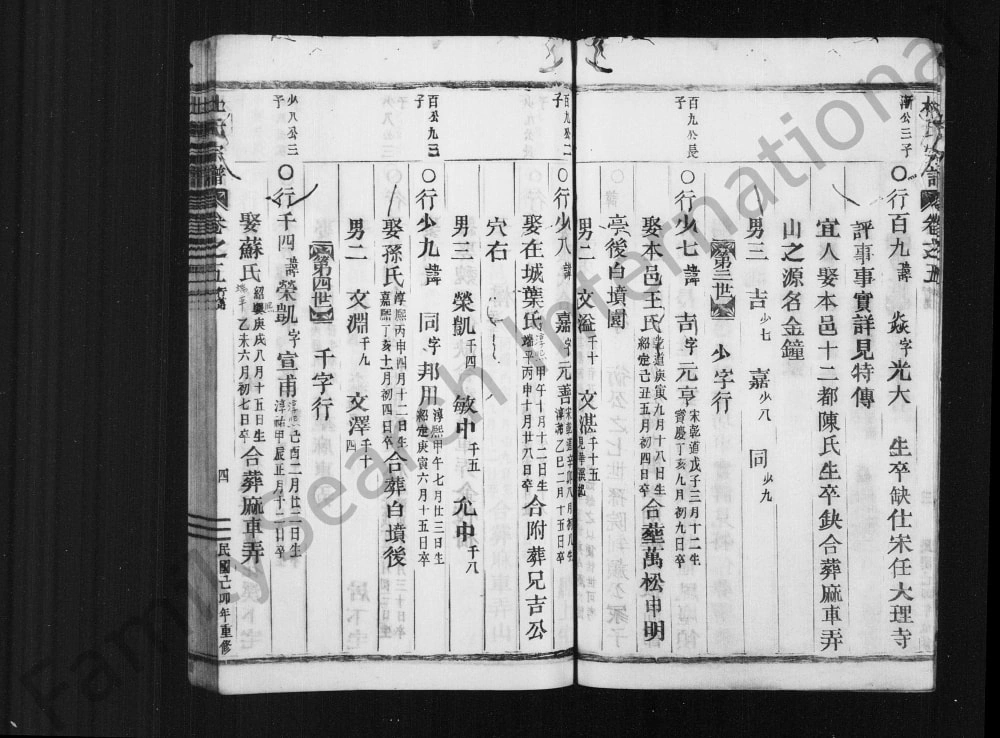 漸公三子
〇行百九 諱 焱 字 光大 生卒缺仕宋任大理寺
評事事實詳見特傳
宜人娶本邑十二都陳氏生卒缺合葬麻車弄
山之源名金鐘
男三 吉 少七 嘉 少八 同 少九
第三世 少字行
百九公長子
〇行少七 諱 吉 字 元亨 宋乾道戊子三月十二生 寶慶丁亥九月初九日卒
娶本邑王氏 乾道庚寅九月十八日生 紹定己丑五月初四日卒 合塟萬松申明
亭後白墳園
男二 文溢 千十 文湛 千十五
百九公二子
〇行少八 諱 嘉 字 元善
娶在城葉氏 淳熙甲午十月十二日生 端平丙申十月廿八日卒 合附葬兄吉公
穴右
男三 榮凱 千四 敏中 千五 允中 千八
百九公三子
〇行少九 諱 同 字 邦川 淳熙甲午七月廿三日生 紹定庚寅六月十五日卒
娶孫氏 淳熙丙申四月十二日生 嘉熙丁亥十一月初四日卒 合葬白墳後
男二 文淵 千九 文澤 千十四
第四世 千字行
少八公三子
〇行千四 諱 榮凱 字 宣甫
娶蘇氏 紹熙庚戌八月十五日生 端平乙未六月初七日卒 合葬麻車弄
宗譜 卷之五 四 民國己卯年重修
FamilySearch International